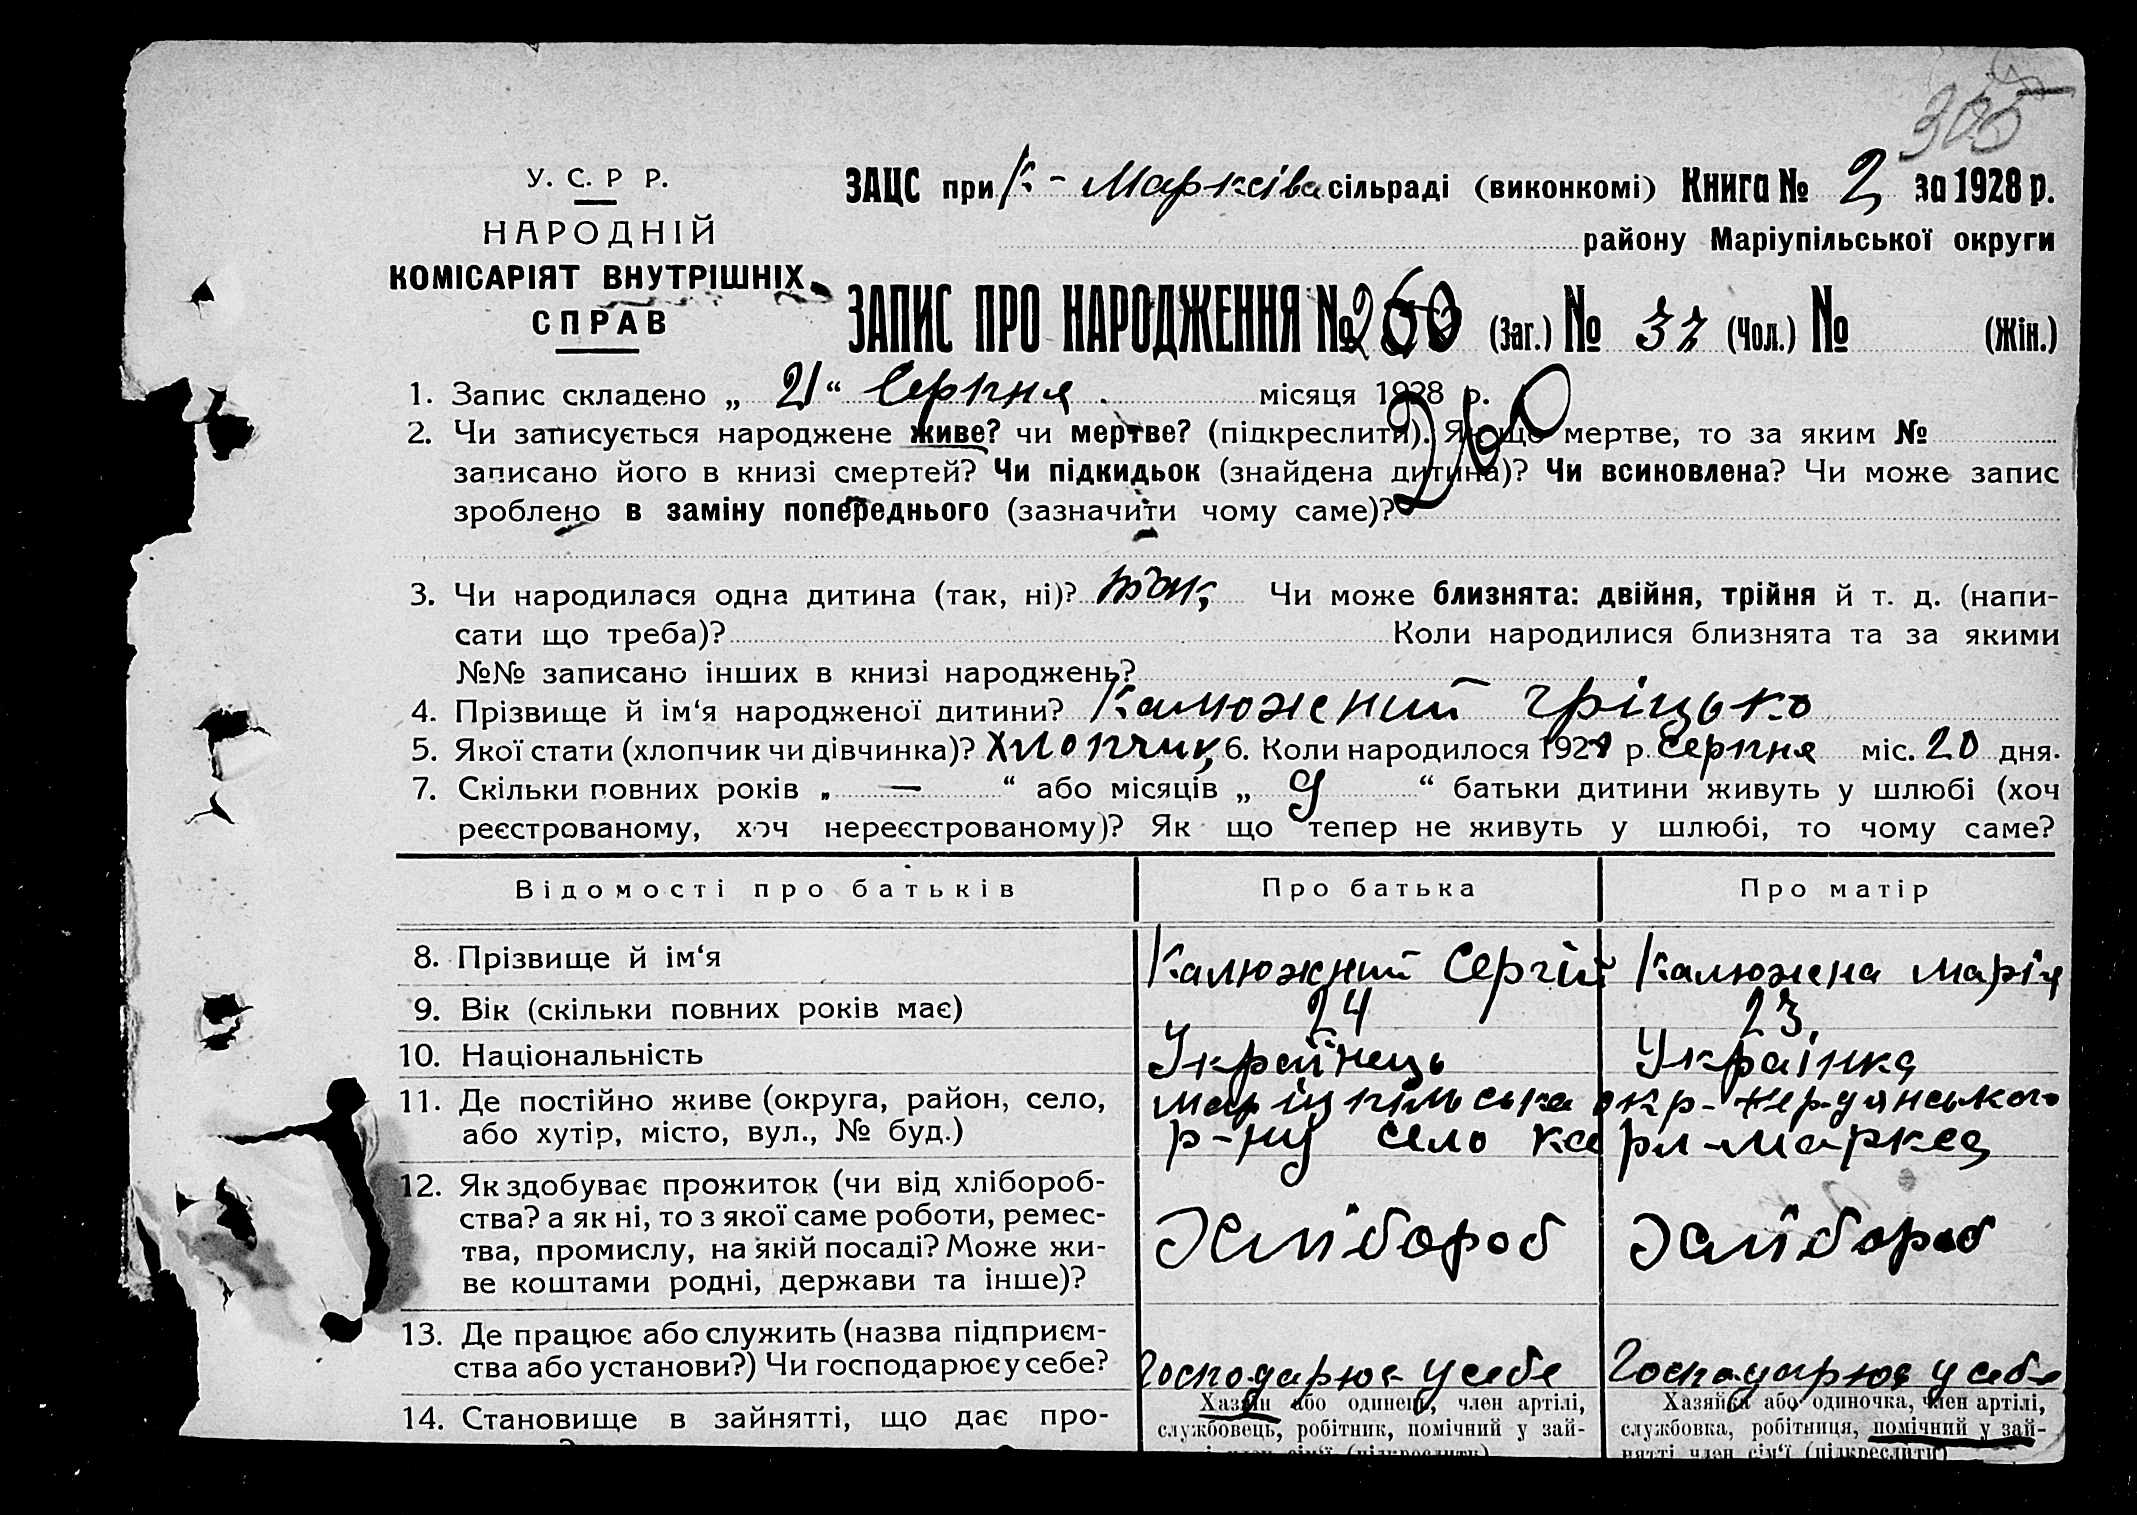 305
У. С. Р Р.
НАРОДНІЙ
КОМІСАРІЯТ ВНУТРІШНІХ
СПРАВ
ЗАЦС при К-Марксівс сільраді (виконкомі) Книга № 2 за 1928 р.
району Маріупільської округи
ЗАПИС ПРО НАРОДЖЕННЯ № 260 (Заг.) № 37 (Чол.) № (Жін.)
1. Запис складено „ 21 “ Серпня місяця 1928 р.
260
2. Чи записується народжене живе? чи мертве? (підкреслити). Як що мертве, то за яким №
записано його в книзі смертей? Чи підкидьок (знайдена дитина)? Чи всиновлена? Чи може запис
зроблено в заміну попереднього (зазначити чому саме)?
3. Чи народилася одна дитина (так, ні)? так, Чи може близнята: двійня, трійня й т. д. (напи-
сати що треба)? Коли народилися близнята та за якими
№№ записано інших в книзі народжень?
4. Прізвище й ім‘я народженої дитини? Калюжний Гріцько
5. Якої стати (хлопчик чи дівчинка)? Хлопчик, 6. Коли народилося 1928 р. Серпня міс. 20 дня.
7. Скільки повних років „ — “ або місяців „ 9 “ батьки дитини живуть у шлюбі (хоч
реєстрованому, хоч нереєстрованому)? Як що тепер не живуть у шлюбі, то чому саме?
Відомості про батьків Про батька Про матір
8. Прізвище й ім‘я Калюжний Сергій Калюжна Марія
9. Вік (скільки повних років має) 24 23.
10. Національність Українець Українка
11. Де постійно живе (округа, район, село, Маріупільська окр-
або хутір, місто, вул., № буд.) р-ну село Карл-Маркса
12. Як здобуває прожиток (чи від хлібороб-
ства? а як ні, то з якої саме роботи, ремес- Хлібороб Хлібороб
тва, промислу, на якій посаді? Може жи-
ве коштами родні, держави та інше)?
13. Де працює або служить (назва підприєм-
ства або установи?) Чи господарює у себе? Господарює у себе Господарює у себе
14. Становище в зайнятті, що дає про-
Хазяїн або одинець, член артілі,
службовець, робітник, помічний у зай-
Хазяйка або одиночка, член артілі,
службовка, робітниця, помічний у зай-
нятті член сім‘ї (підкреслити)